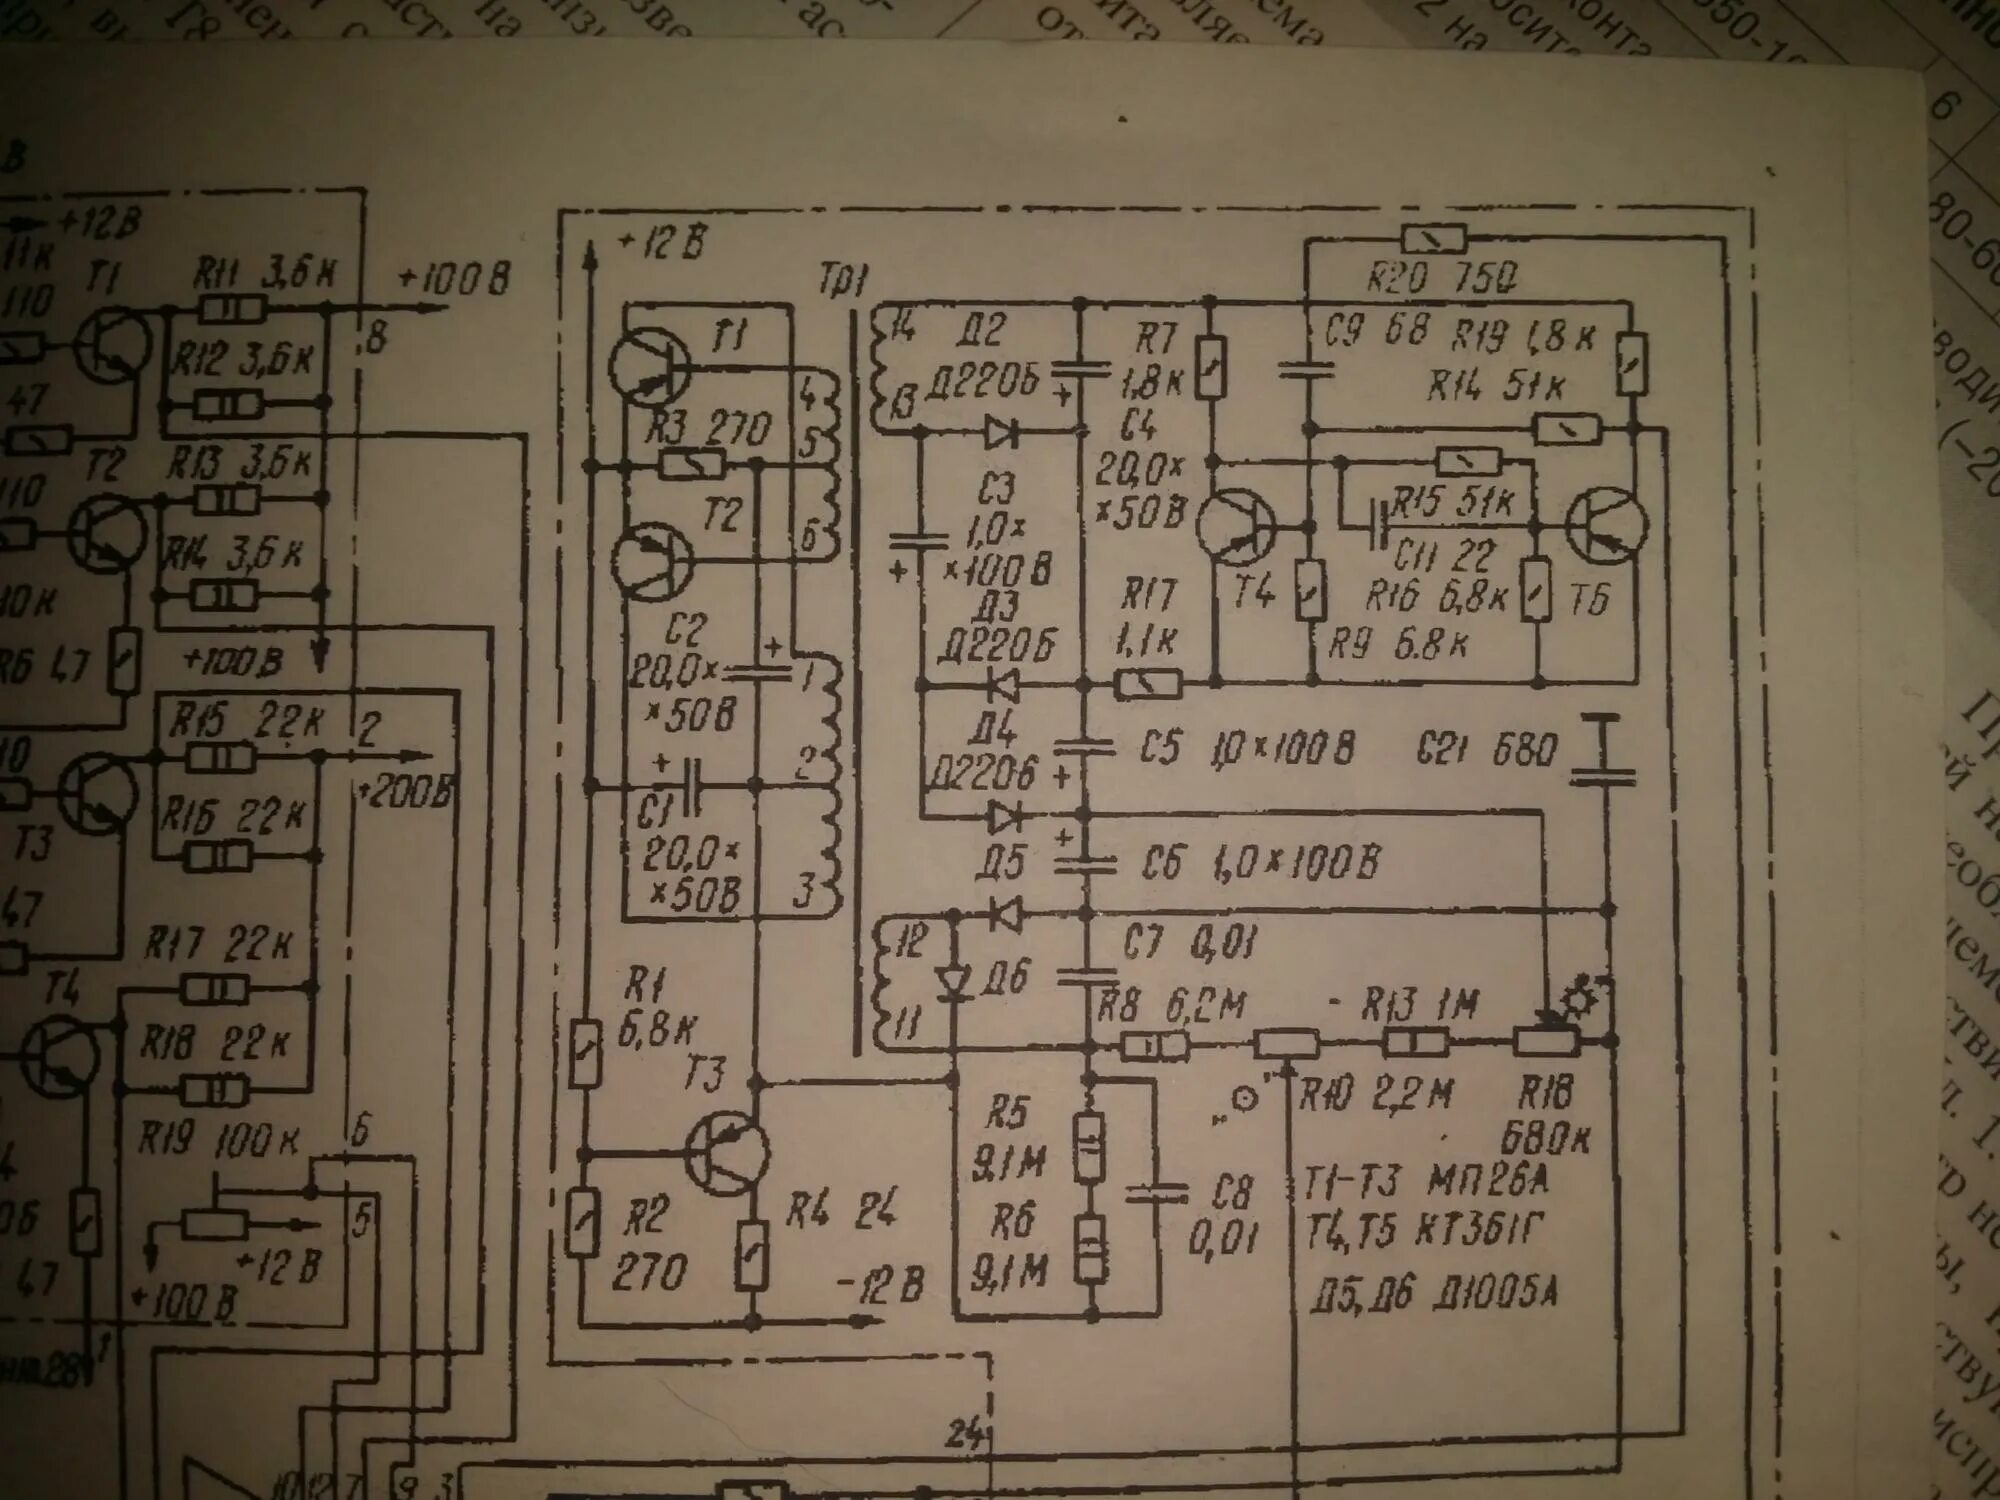 +12В
11к
T1
R11 3,6к
+100В
110
8
R12 3,6к
47
T2
R13 3,6к
110
R14 3,6к
R6 47
+100В
R15 22к
2
+200В
T3
R16 22к
47
R17 22к
T4
R18 22к
R19 100к
6
5
+12В
+100В
47
1
10 12 7 9 3
24
+12В
Тр1
T1
4
R3 270
5
T2
6
C2
20,0×
×50В
1
2
C1
20,0×
×50В
3
R1
6,8к
T3
R2
270
R4 24
-12В
14
13
Д2
Д220Б
C3
1,0×
×100В
Д3
Д220Б
Д4
Д220Б
Д5
12
11
Д6
R7
1,8к
C4
20,0×
×50В
R17
1,1к
T4
C5 1,0×100В
C6 1,0×100В
C7 0,01
R8 6,2М
R13 1М
R5
9,1М
R6
9,1М
C8
0,01
R10 2,2М
R18
680к
R20 750
C9 68
R19 1,8к
R14 51к
R15 51к
C11 22
R16 6,8к
R9 6.8к
T5
C21 680
T1-T3 МП26А
T4,T5 КТ361Г
Д5,Д6 Д1005А